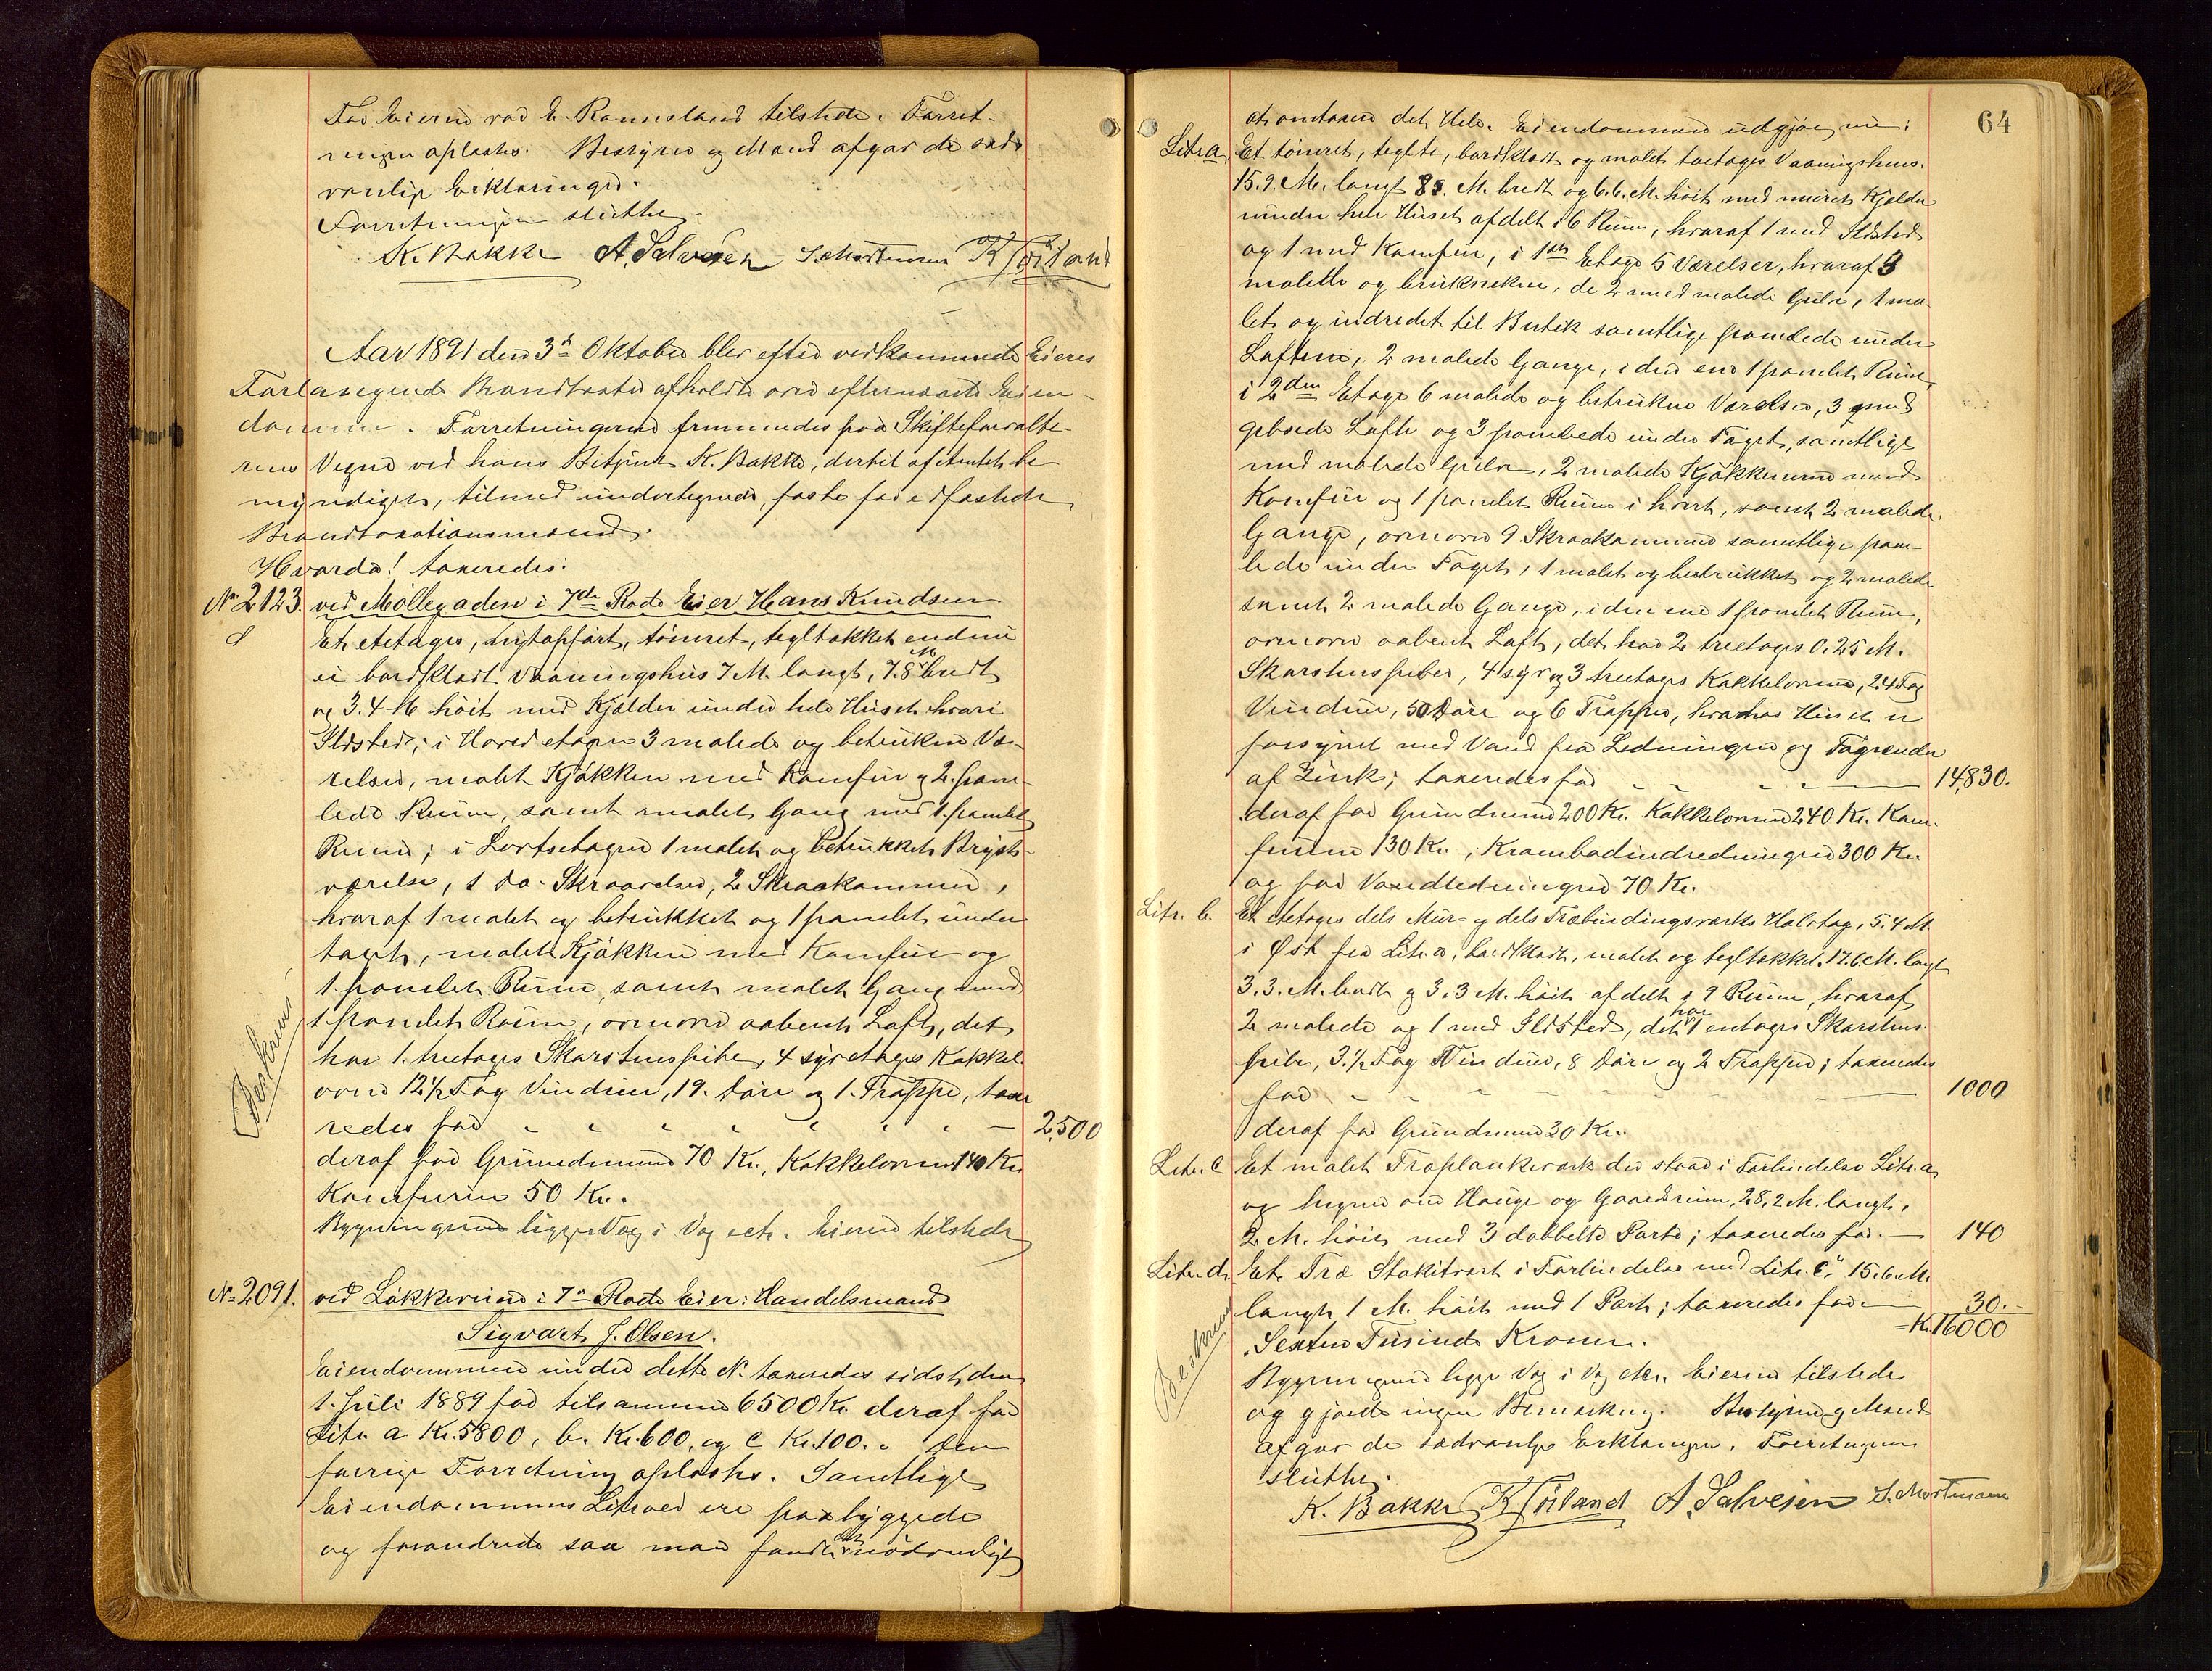 For Eieren var E. Rannesland tilstede. Forret-
ningen oplæstes. Bestyrer og Mænd afgav de sæd-
vanlige Erklæringer.
Forretningen sluttet.
K. Bakke A. Salvesen S. Mortensen K Töiland
Aar 1891 den 3die Oktober blev efter vedkommende Eieres
Forlangende Brandtaxter afholdte over efternævnte Eien-
domme. Forretningerne fremmedes paa Skifteforvalte-
rens Vegne ved hans Betjent K. Bakke, dertil af Amtet be-
myndiget, tilmed undertegnede, faste for edfæstede
Brandtaxationsmænd.
Hvorda! taxeredes:
No 2123. ved Möllegaden i 7de Rode Eier Hans Knudsen
Et etetages, nyt opført, tømret, tegltækket endnu
ei bordklædt Vaaningshus 7 M. langt, 7.8 M bredt
og 3.4 M høit med Kjælder under hele Huset hvori
Ildsted; i Hovedetagen 3 malede og betrukne Væ-
relser, malet Kjøkken med Komfur og 2 pane-
lede Rum, samt malet Gang med 1 panelet
Rum; i Loftsetagen 1 malet og betrukket Bryst-
værelse, 1 do. Skraaværelse, 2 Skraakammer,
hvoraf 1 malet og betrukket og 1 panelet under
taget, malet Kjøkken med Komfur og
1 panelet Rum, samt malet Gang med
1 panelet Rum, ovenover aabent Loft, det
har 1 treetages Skorstenspibe, 4 syretages Kakkel-
ovne 12½ Fag Vinduer, 19 Døre og 1 Trappe, taxe-
redes for 2,500
deraf for Grundmuren 70 Kr., Kakkelovnene 140 Kr.
Komfurene 50 Kr.
Bygningerne ligge Væg i Væg etc. Eieren tilstede
Beskreven
No 2091. ved Løkkeveien i 7de Rode Eier: Handelsmand
Sigvart J. Olsen.
Eiendommen under dette No taxeredes sidst den
1. Juli 1889 for tilsammen 6500 Kr. deraf for
Litr. a Kr. 5800, b. Kr. 600, og c Kr. 100. Den
forrige Forretning oplæstes. Samtlige
Eiendommens Litraer ere paabyggede
og forandrede saa man fandt det nødvendigt
64
at omtaxere det Hele. Eiendommen udgjør nu:
Litr. a. Et tømret, teglte, bordklædt og malet toetages Vaaningshus.
15.9. M. langt 8.. M. bredt og 6.6. M. høit med muret Kjælder
under hele Huset afdelt i 6 Rum, hvoraf 1 med Ildsted
og 1 med Komfur, i 1ste Etage 5 Værelser, hvoraf 3
malede og betrukne, de 2 med malede Gulve, 1 ma-
let og indredet til Butik samtlige panelede under
Loftene, 2 malede Gange, i den ene 1 panelet Rum,
i 2den Etage 6 malede og betrukne Værelser, 3 med
gebsede Lofte og 3 panelede under Taget, samtlige
med malede Gulve, 2 malede Kjøkkenerne med
Komfur og 1 panelet Rum i hvert, samt 2 malede
Gange, ovenover 9 Skraakammere samtlige pane-
lede under Taget, 1 malet og betrukket og 2 malede
samt 2 malede Gange, i den ene 1 panelet Rum,
ovenover aabent Loft, det har 2 treetages 0.25 M.
Skorstenspiber, 4 syr og 3 treetages Kakkelovne, 24 Fag
Vinduer, 50 Døre og 6 Trapper, hvorhos Huset er
forsynet med Vand fra Ledningen og Tagrender
af Zink; taxeredes for 14,830.
deraf for Grundmuren 200 Kr. Kakkelovnene 240 Kr. Kom-
furene 130 Kr., Krambodindredningen 300 Kr.
og for Vandledningen 70 Kr.
Litr. b. Et etetages dels Mur- og dels Træbindingsværks Halvtag, 5.4 M.
i Øst fra Litr. a, bordklædt, malet og tegltækket. 17.6. M. langt
3.3. M. bredt og 3.3 M. høit afdelt i 9 Rum, hvoraf
2 malede og 1 med Ildsted, det har 1 entages Skorstens-
pibe, 3.½ Fag Vinduer, 8 Døre og 2 Trapper; taxeredes
for 1000
deraf for Grundmuren 30 Kr.
Litr. c Et malet Træplankeværk der staar i Forbindelse Litr. a
og hegner om Hauge og Gaardsrum, 28,2 M. langt,
2 M. høit med 3 dobbelte Porte; taxeredes for. 140
Litr. d. Et Træ Stakitværk i Forbindelse med Litr. "c", 15.6. M.
langt 1 M. høit med 1 Port; taxeredes for 30.
= Kr. 16000
Sexten Tusinde Kroner.
Bygningerne ligge Væg i Væg etc. Eieren tilstede
og gjorde ingen Bemærkning. Bestyrer og Mænd
afgav de sædvanlige Erklæringer. Forretningen
sluttet.
Beskreven
K. Bakke K Töiland A. Salvesen S. Mortensen